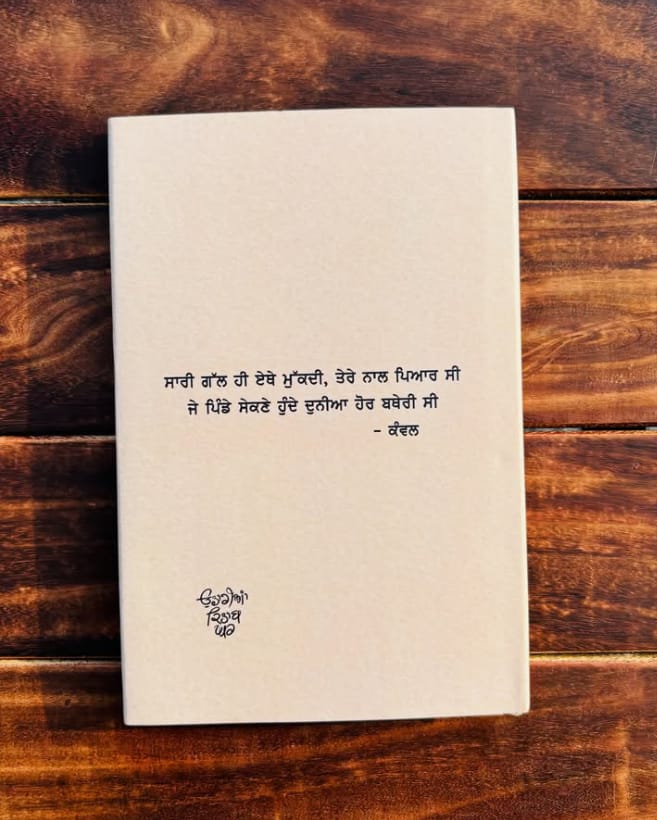 ਸਾਰੀ ਗੱਲ ਹੀ ਏਥੇ ਮੁੱਕਦੀ, ਤੇਰੇ ਨਾਲ ਪਿਆਰ ਸੀ
ਜੇ ਪਿੰਡੇ ਸੇਕਣੇ ਹੁੰਦੇ ਦੁਨੀਆ ਹੋਰ ਬਥੇਰੀ ਸੀ
- ਕੰਵਲ
ਕਿਤਾਬ
ਘਰ